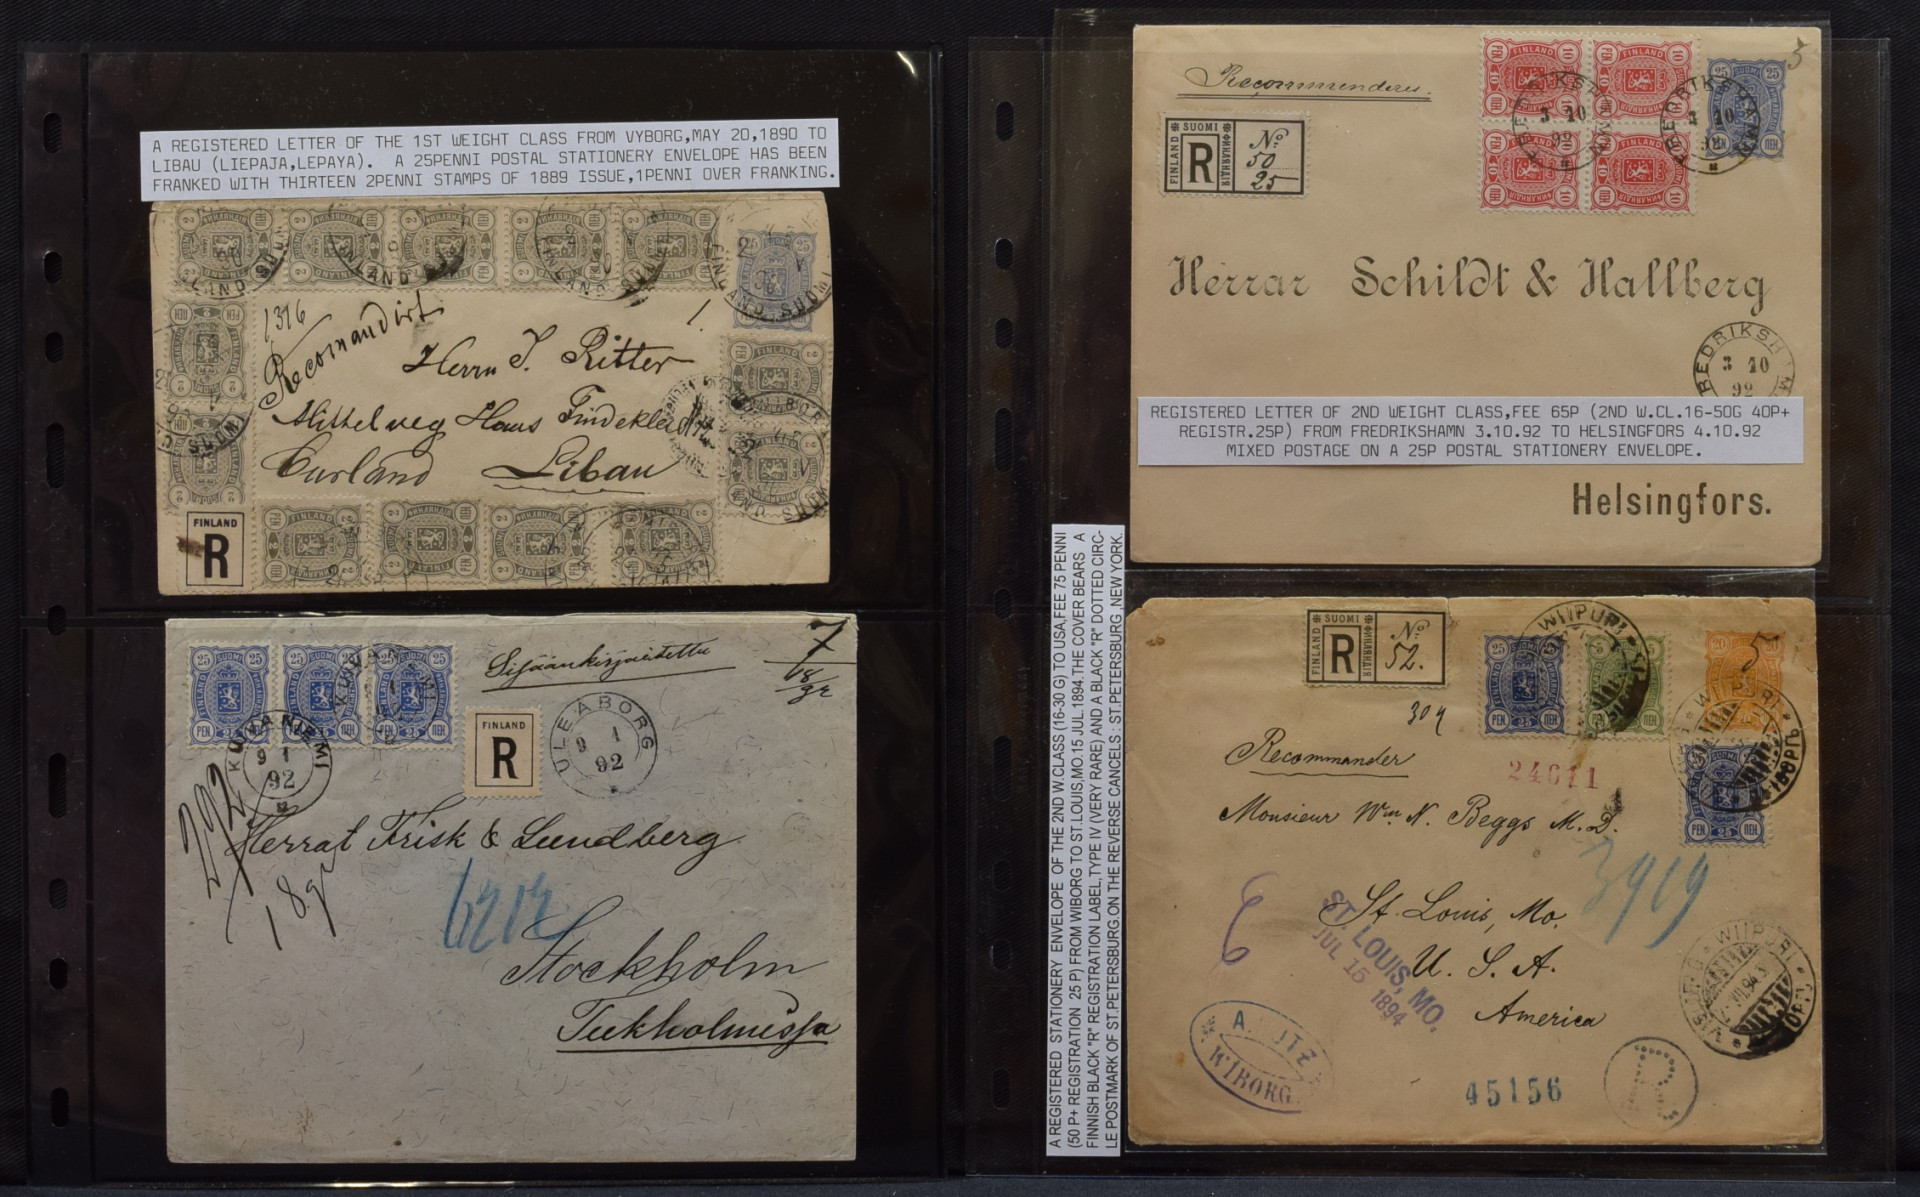 A REGISTERED LETTER OF THE 1ST WEIGHT CLASS FROM VYBORG,MAY 20,1890 TO
LIBAU (LIEPAJA,LEPAYA). A 25PENNI POSTAL STATIONERY ENVELOPE HAS BEEN
FRANKED WITH THIRTEEN 2PENNI STAMPS OF 1889 ISSUE,1PENNI OVER FRANKING.
1316
Recomandirt
Herrn J. Ritter
Mittelweg Haus
Curland Libau
FINLAND
R
25 SUOMI 25
FINLAND
PEN. 25 ПЕН.
Sisäänkirjoitettu
7
18
gr
KUHANIEMI
9 1
92
FINLAND
R
ULEABORG
9 1
92
292
18 gr
Frisk & Lundberg
6212
Stockholm
Tukholmissa
Recommenderas.
FINLAND SUOMI ФИНЛЯНДІЯ
R
No
50
25
FINLAND
10 10
PEN ПЕН
FREDRIKSHAMN
3 10
92
25 SUOMI 25
5
Herrar Schildt & Hallberg
FREDRIKSHAMN
3 10
92
REGISTERED LETTER OF 2ND WEIGHT CLASS,FEE 65P (2ND W.CL.16-50G 40P+
REGISTR.25P) FROM FREDRIKSHAMN 3.10.92 TO HELSINGFORS 4.10.92
MIXED POSTAGE ON A 25P POSTAL STATIONERY ENVELOPE.
Helsingfors.
A REGISTERED STATIONERY ENVELOPE OF THE 2ND W.CLASS (16-30 G) TO USA,FEE 75 PENNI
(50 P+ REGISTRATION 25 P) FROM WIBORG TO ST.LOUIS,MO. 15 JUL 1894.THE COVER BEARS A
FINNISH BLACK "R" REGISTRATION LABEL,TYPE IV (VERY RARE) AND A BLACK "R" DOTTED CIRC-
LE POSTMARK OF ST.PETERSBURG.ON THE REVERSE CANCELS : ST.PETERSBURG ,NEW YORK.
FINLAND SUOMI ФИНЛЯНДІЯ
R
No
52.
WIIPURI
20 20
5
PEN. 25 ПЕН.
Recommander
24611
Monsieur Wm N. Beggs M.D.
3919
St. Louis, Mo.
U. S. A.
America
ST. LOUIS, MO.
JUL 15 1894
WIBORG
WIIPURI
45156
R